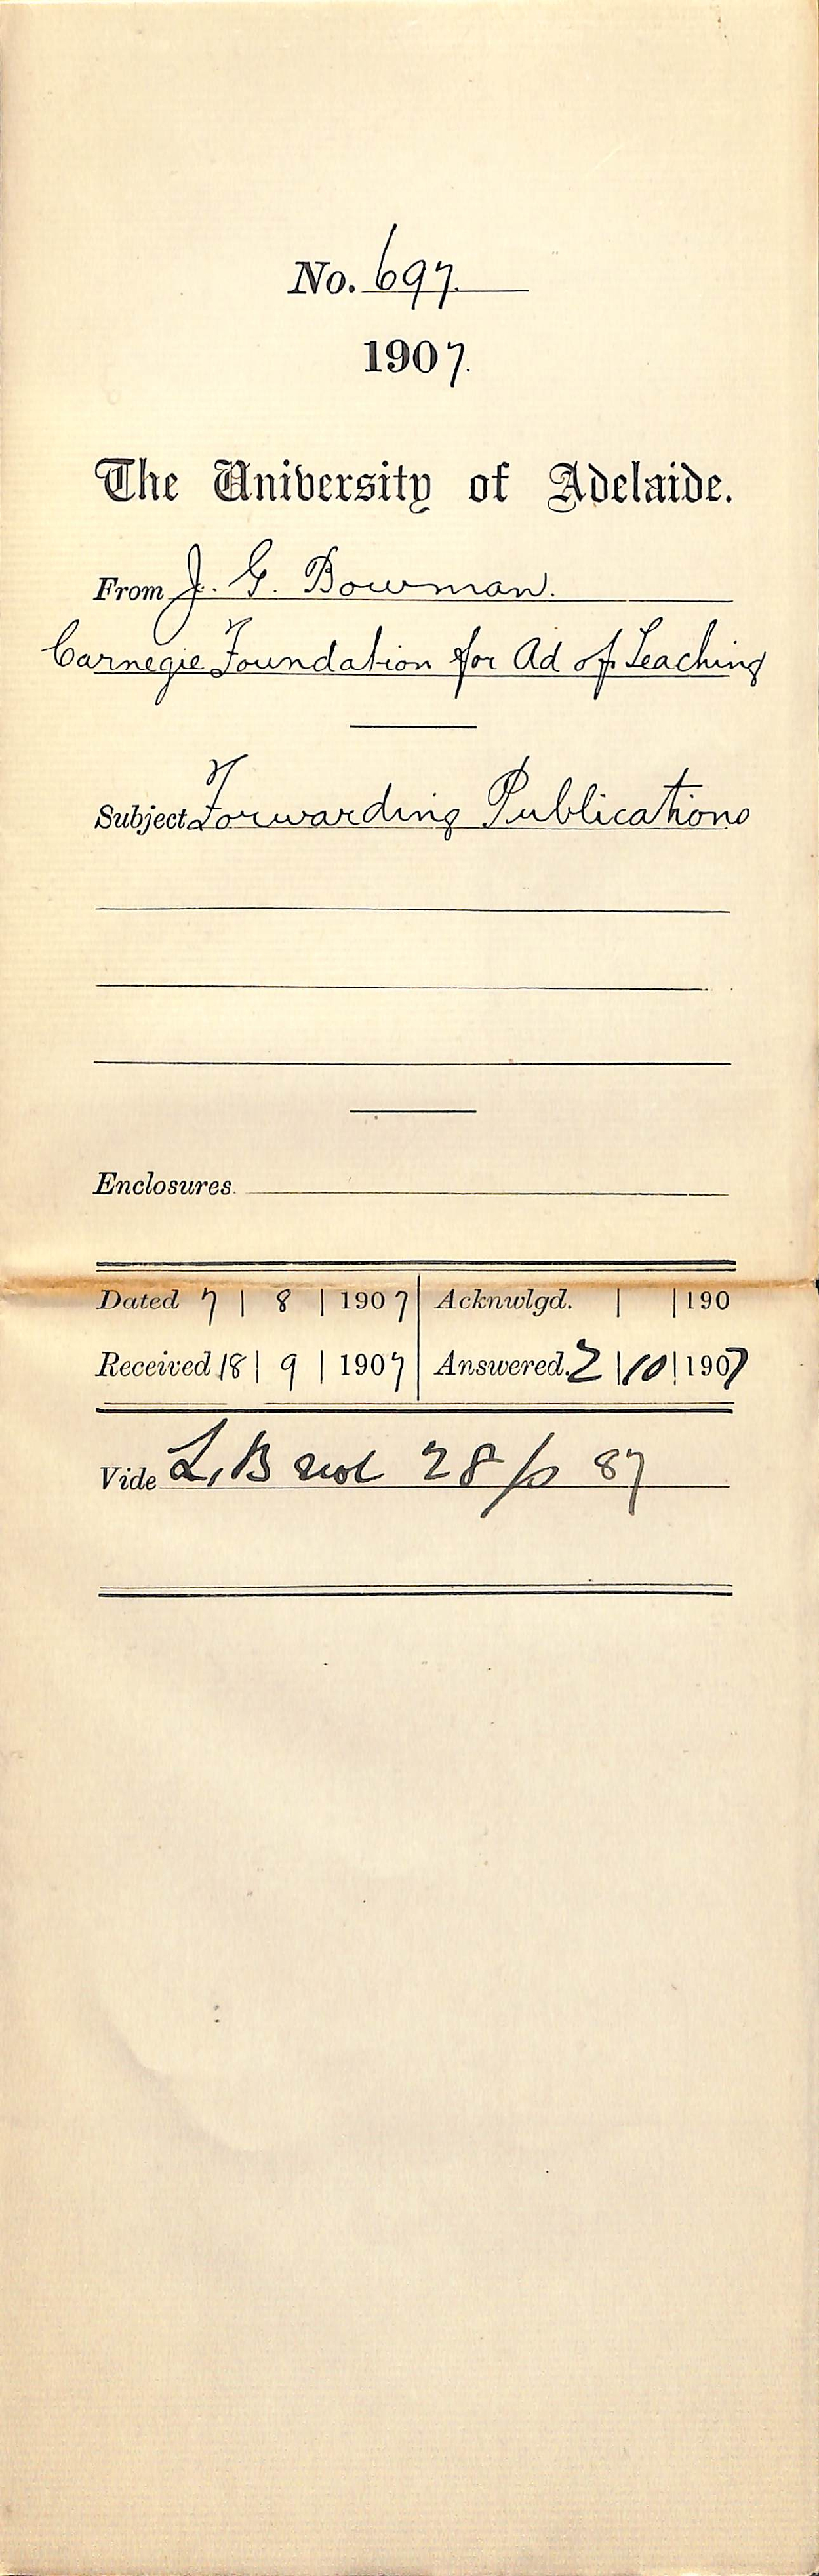 No. 697.
1907.
The University of Adelaide.
From J. G. Bowman.
Carnegie Foundation for Ad of Teaching
Subject Forwarding Publications
Enclosures
Dated 7 | 8 | 1907 | Acknwlgd. | | 190
Received 18 | 9 | 1907 | Answered. 2 | 10 | 1907
Vide L, B vol 28 p 87